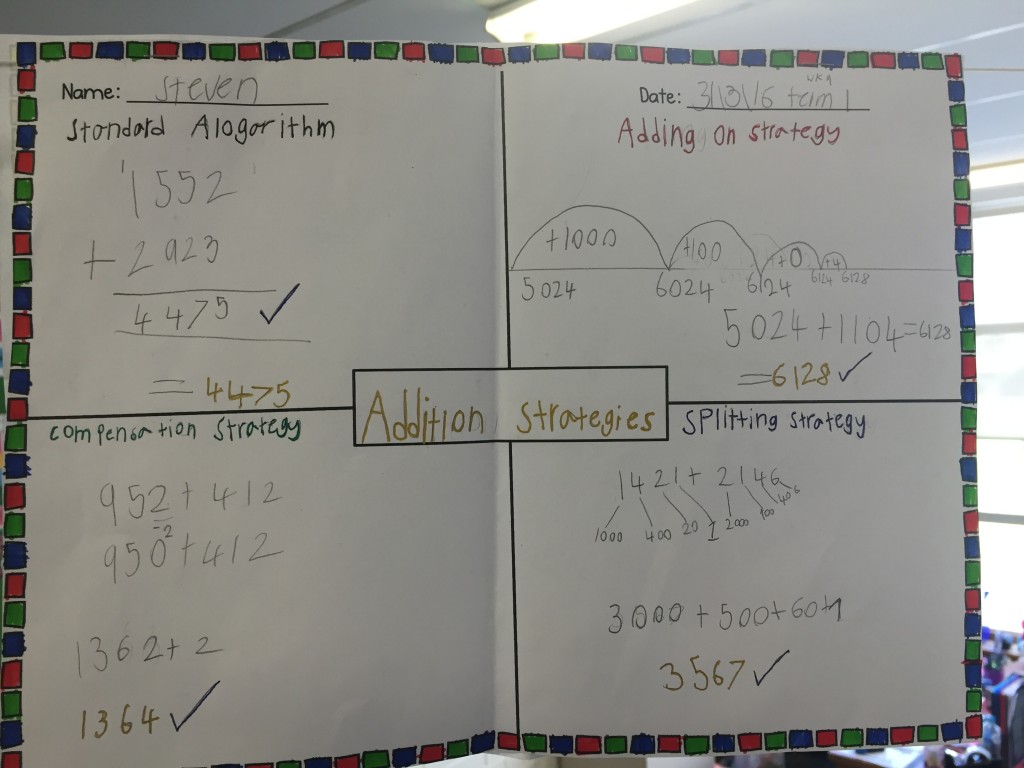 Name: Steven
Standard Alogorithm
1
1552
+ 2923
4475
= 4475
wk 9
Date: 31/3/16 term 1
Adding on strategy
+1000 +100 +0 +4
5024 6024 6124 6124 6128
5024+1104=6128
=6128
Addition Strategies
compensation strategy
952+ 412
-2
950+412
1362+ 2
1364
Splitting strategy
1421+ 2146
1000 400 20 1 2000 100 40 6
3000 + 500+60+7
3567